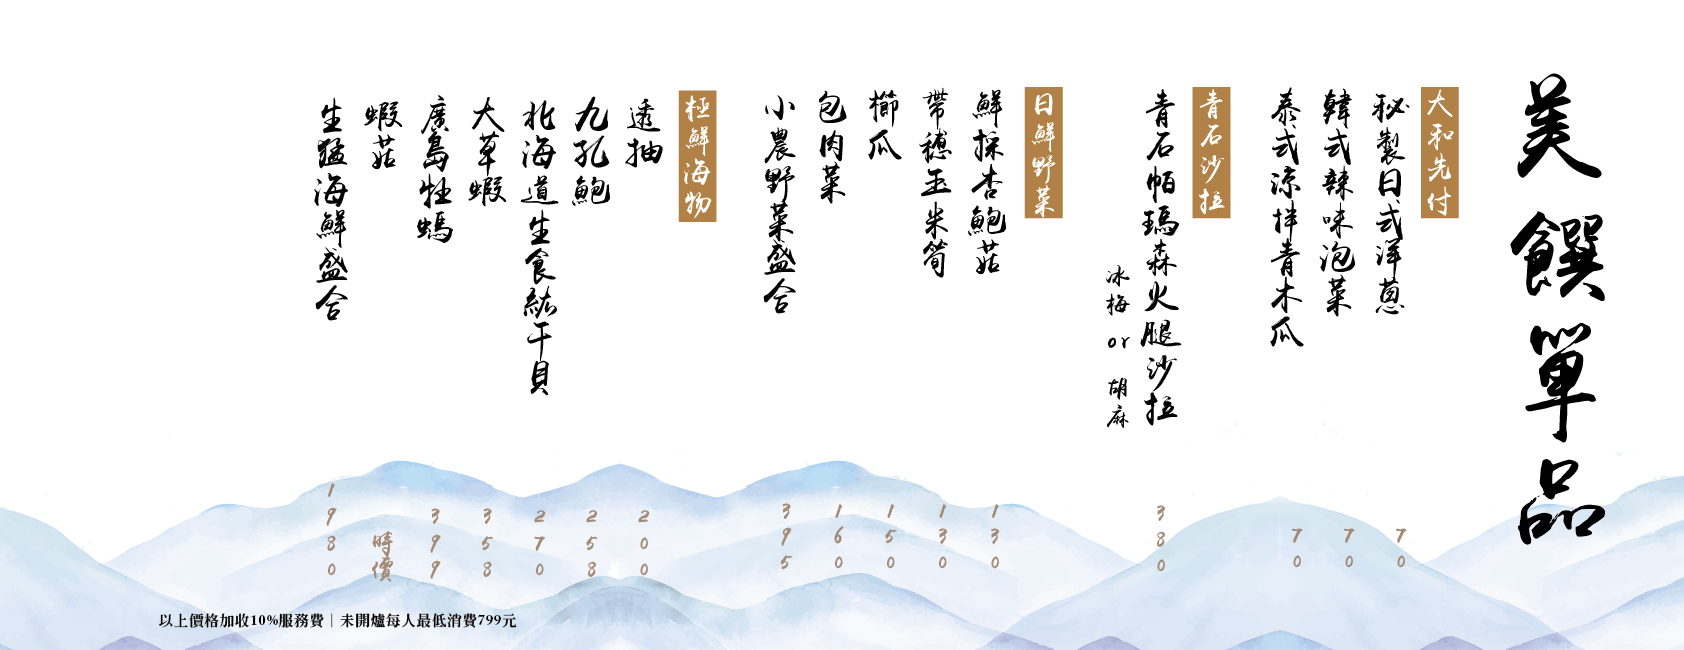 美饌單品
大和先付
秘製日式洋蔥
70
韓式辣味泡菜
70
泰式涼拌青木瓜
70
青石沙拉
青石帕瑪森火腿沙拉
冰梅 or 胡麻
380
日鮮野菜
鮮採杏鮑菇
130
帶穗玉米筍
130
櫛瓜
150
包肉菜
160
小農野菜盛合
395
極鮮海物
透抽
200
九孔鮑
258
北海道生食級干貝
270
大草蝦
358
廣島牡蠣
399
蝦菇
時價
生猛海鮮盛合
1980
以上價格加收10%服務費｜未開爐每人最低消費799元